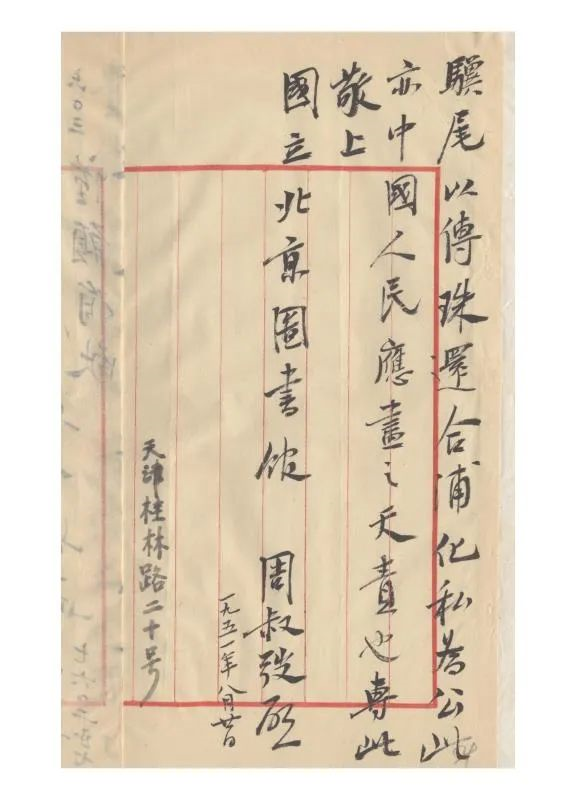 驥尾以傳珠還合浦化私為公此
亦中國人民應盡之天責也專此
敬上
國立北京圖書館 周叔弢啟
一九五一年八月廿日
天津桂林路二十号